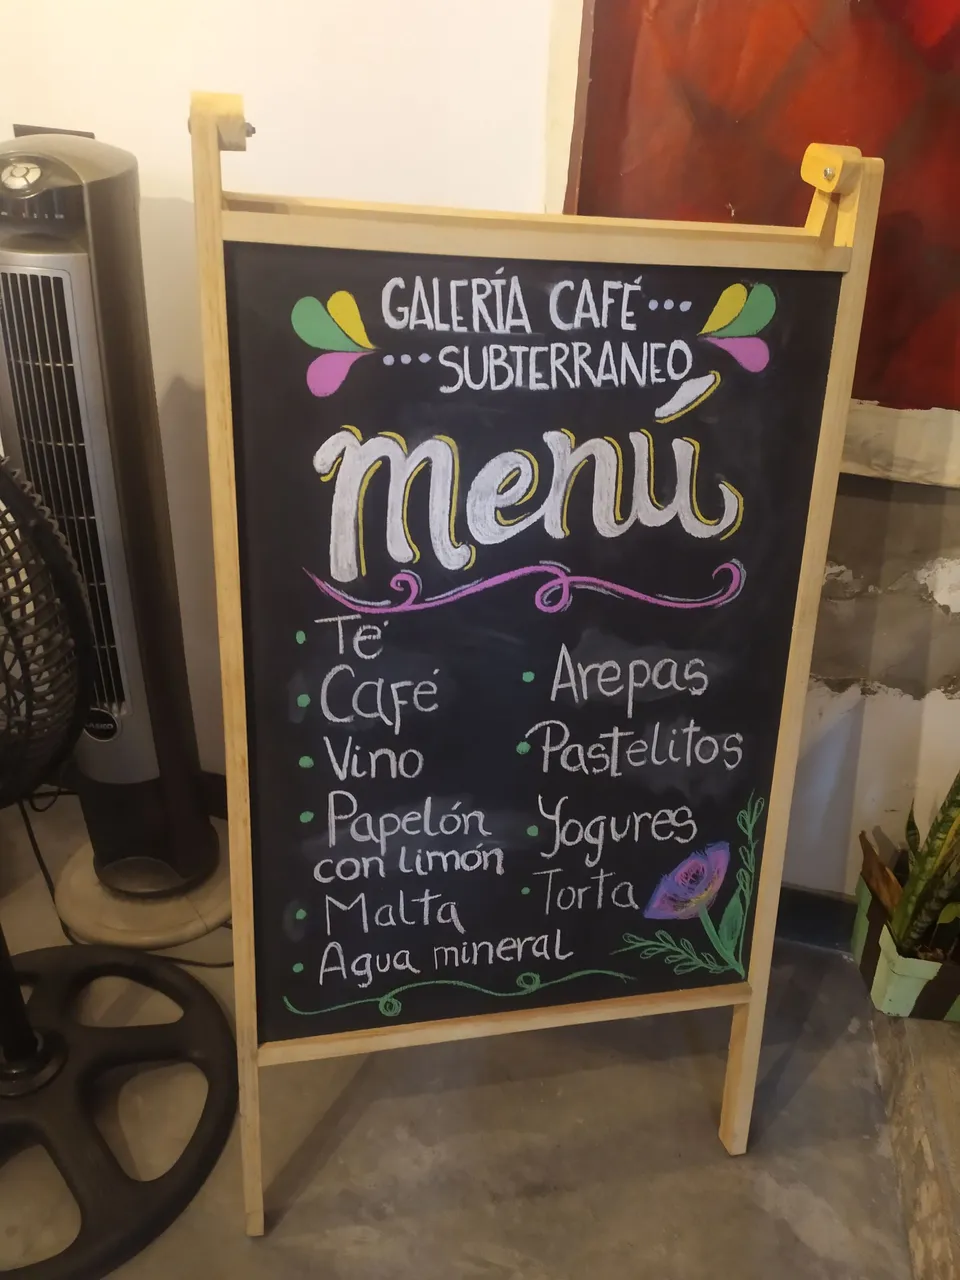 GALERÍA CAFÉ...
...SUBTERRANEO
Menú
• Té
• Café
• Vino
• Papelón
con limón
• Malta
• Agua mineral
• Arepas
• Pastelitos
• Yogures
• Torta